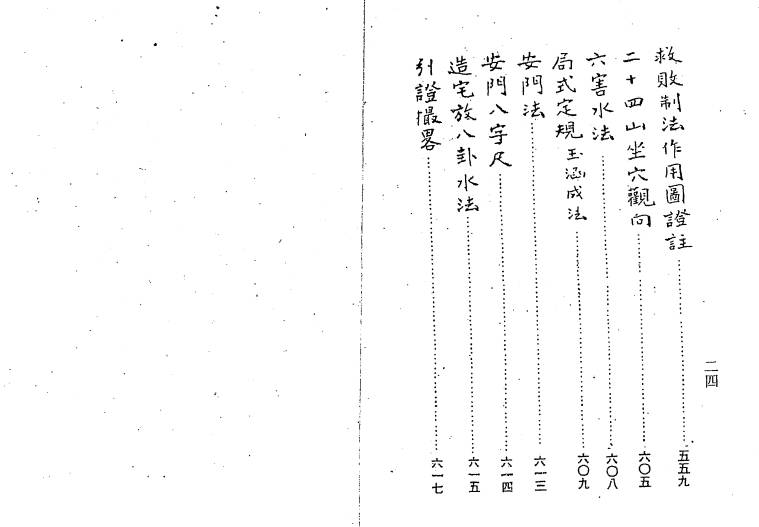 救敗制法作用圖證註……五五九
二十四山坐穴觀向……六〇五
六害水法……六〇八
局式定規玉涵成法……六〇九
安門法……六一三
安門八字尺……六一四
造宅放八卦水法……六一五
引證撮畧……六一七
二四